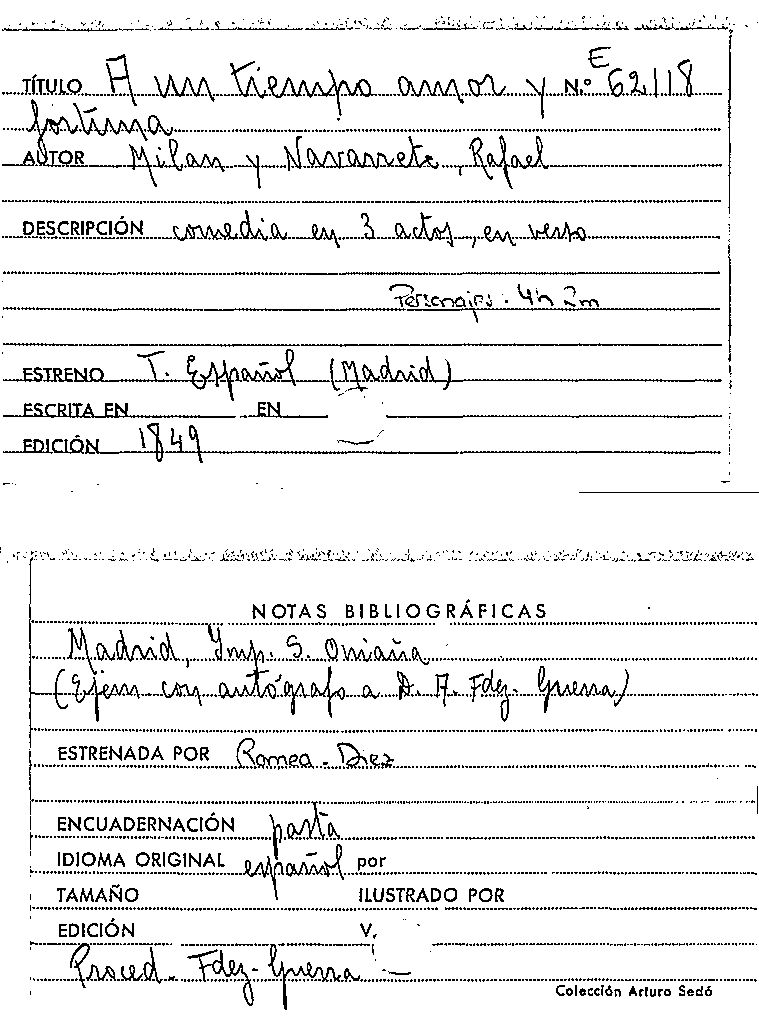 TÍTULO A un tiempo amor y N.º E 62118
fortuna
AUTOR Milan y Navarrete, Rafael
DESCRIPCIÓN comedia en 3 actos, en verso
Personajes. 4h 2m
ESTRENO T. Español (Madrid)
ESCRITA EN EN
EDICIÓN 1849
NOTAS BIBLIOGRÁFICAS
Madrid, Imp. S. Omaña
(Ejem con autógrafo a D. A. Fdez. Guerra)
ESTRENADA POR Romea. Diez
ENCUADERNACIÓN pasta
IDIOMA ORIGINAL español por
TAMAÑO ILUSTRADO POR
EDICIÓN V.
Proced. Fdez-Guerra
Colección Arturo Sedó